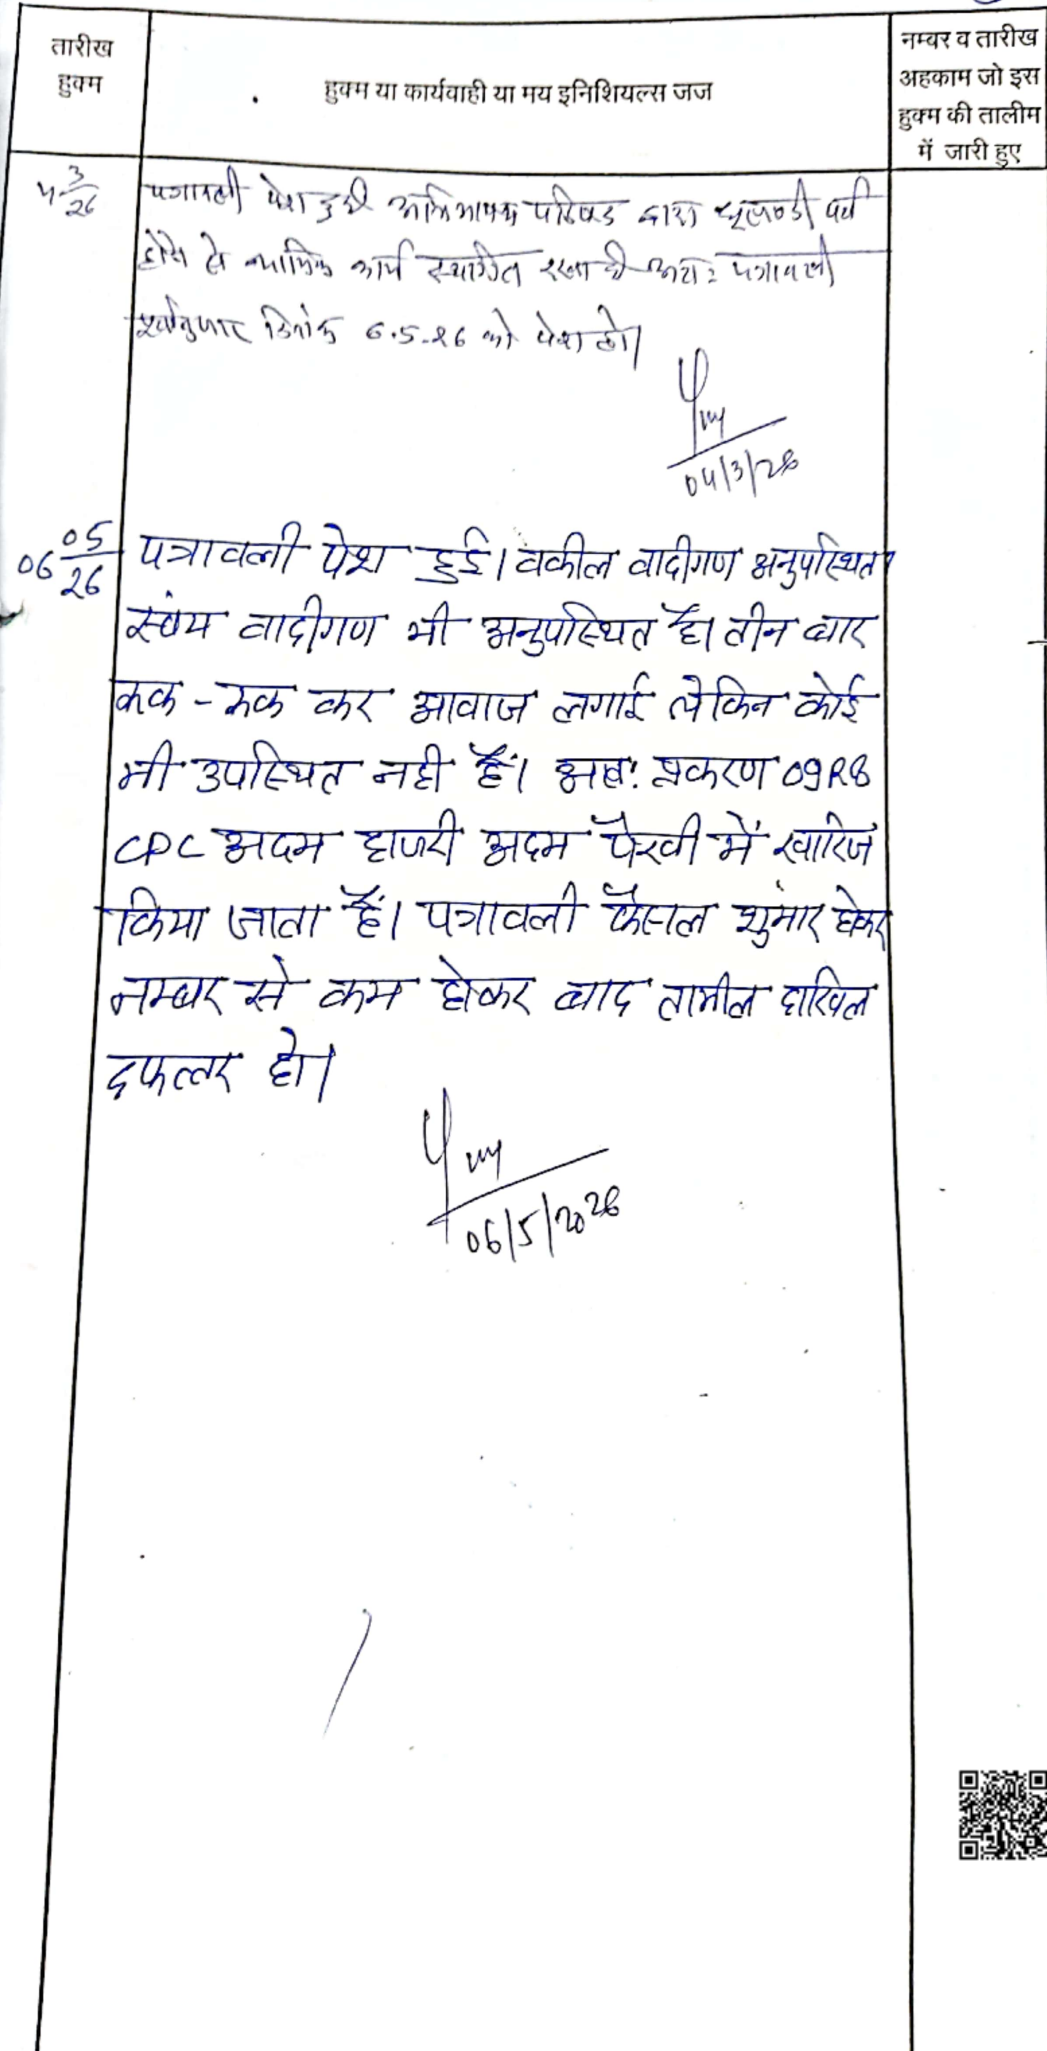 तारीख
हुक्म
हुक्म या कार्यवाही या मय इनिशियल्स जज
नम्बर व तारीख
अहकाम जो इस
हुक्म की तालीम
में जारी हुए
4 3/26
पत्रावली पेश हुयी अभिभाषक परिषद द्वारा धूलण्डी पर्व
होने से न्यायिक कार्य स्थगित रखा है अतः पत्रावली
पूर्वानुसार दिनांक 6.5.26 को पेश हो।
04/3/26
06 05/26
पत्रावली पेश हुई। वकील वादीगण अनुपस्थित
स्वंय वादीगण भी अनुपस्थित है। तीन बार
रूक - रूक कर आवाज लगाई लेकिन कोई
भी उपस्थित नही हैं। अतः प्रकरण 09R8
CPC अदम हाजरी अदम पैरवी में खारिज
किया जाता हैं। पत्रावली फैसल शुमार होकर
नम्बर से कम होकर बाद तामील दाखिल
दफ्तर हो।
06/5/2026